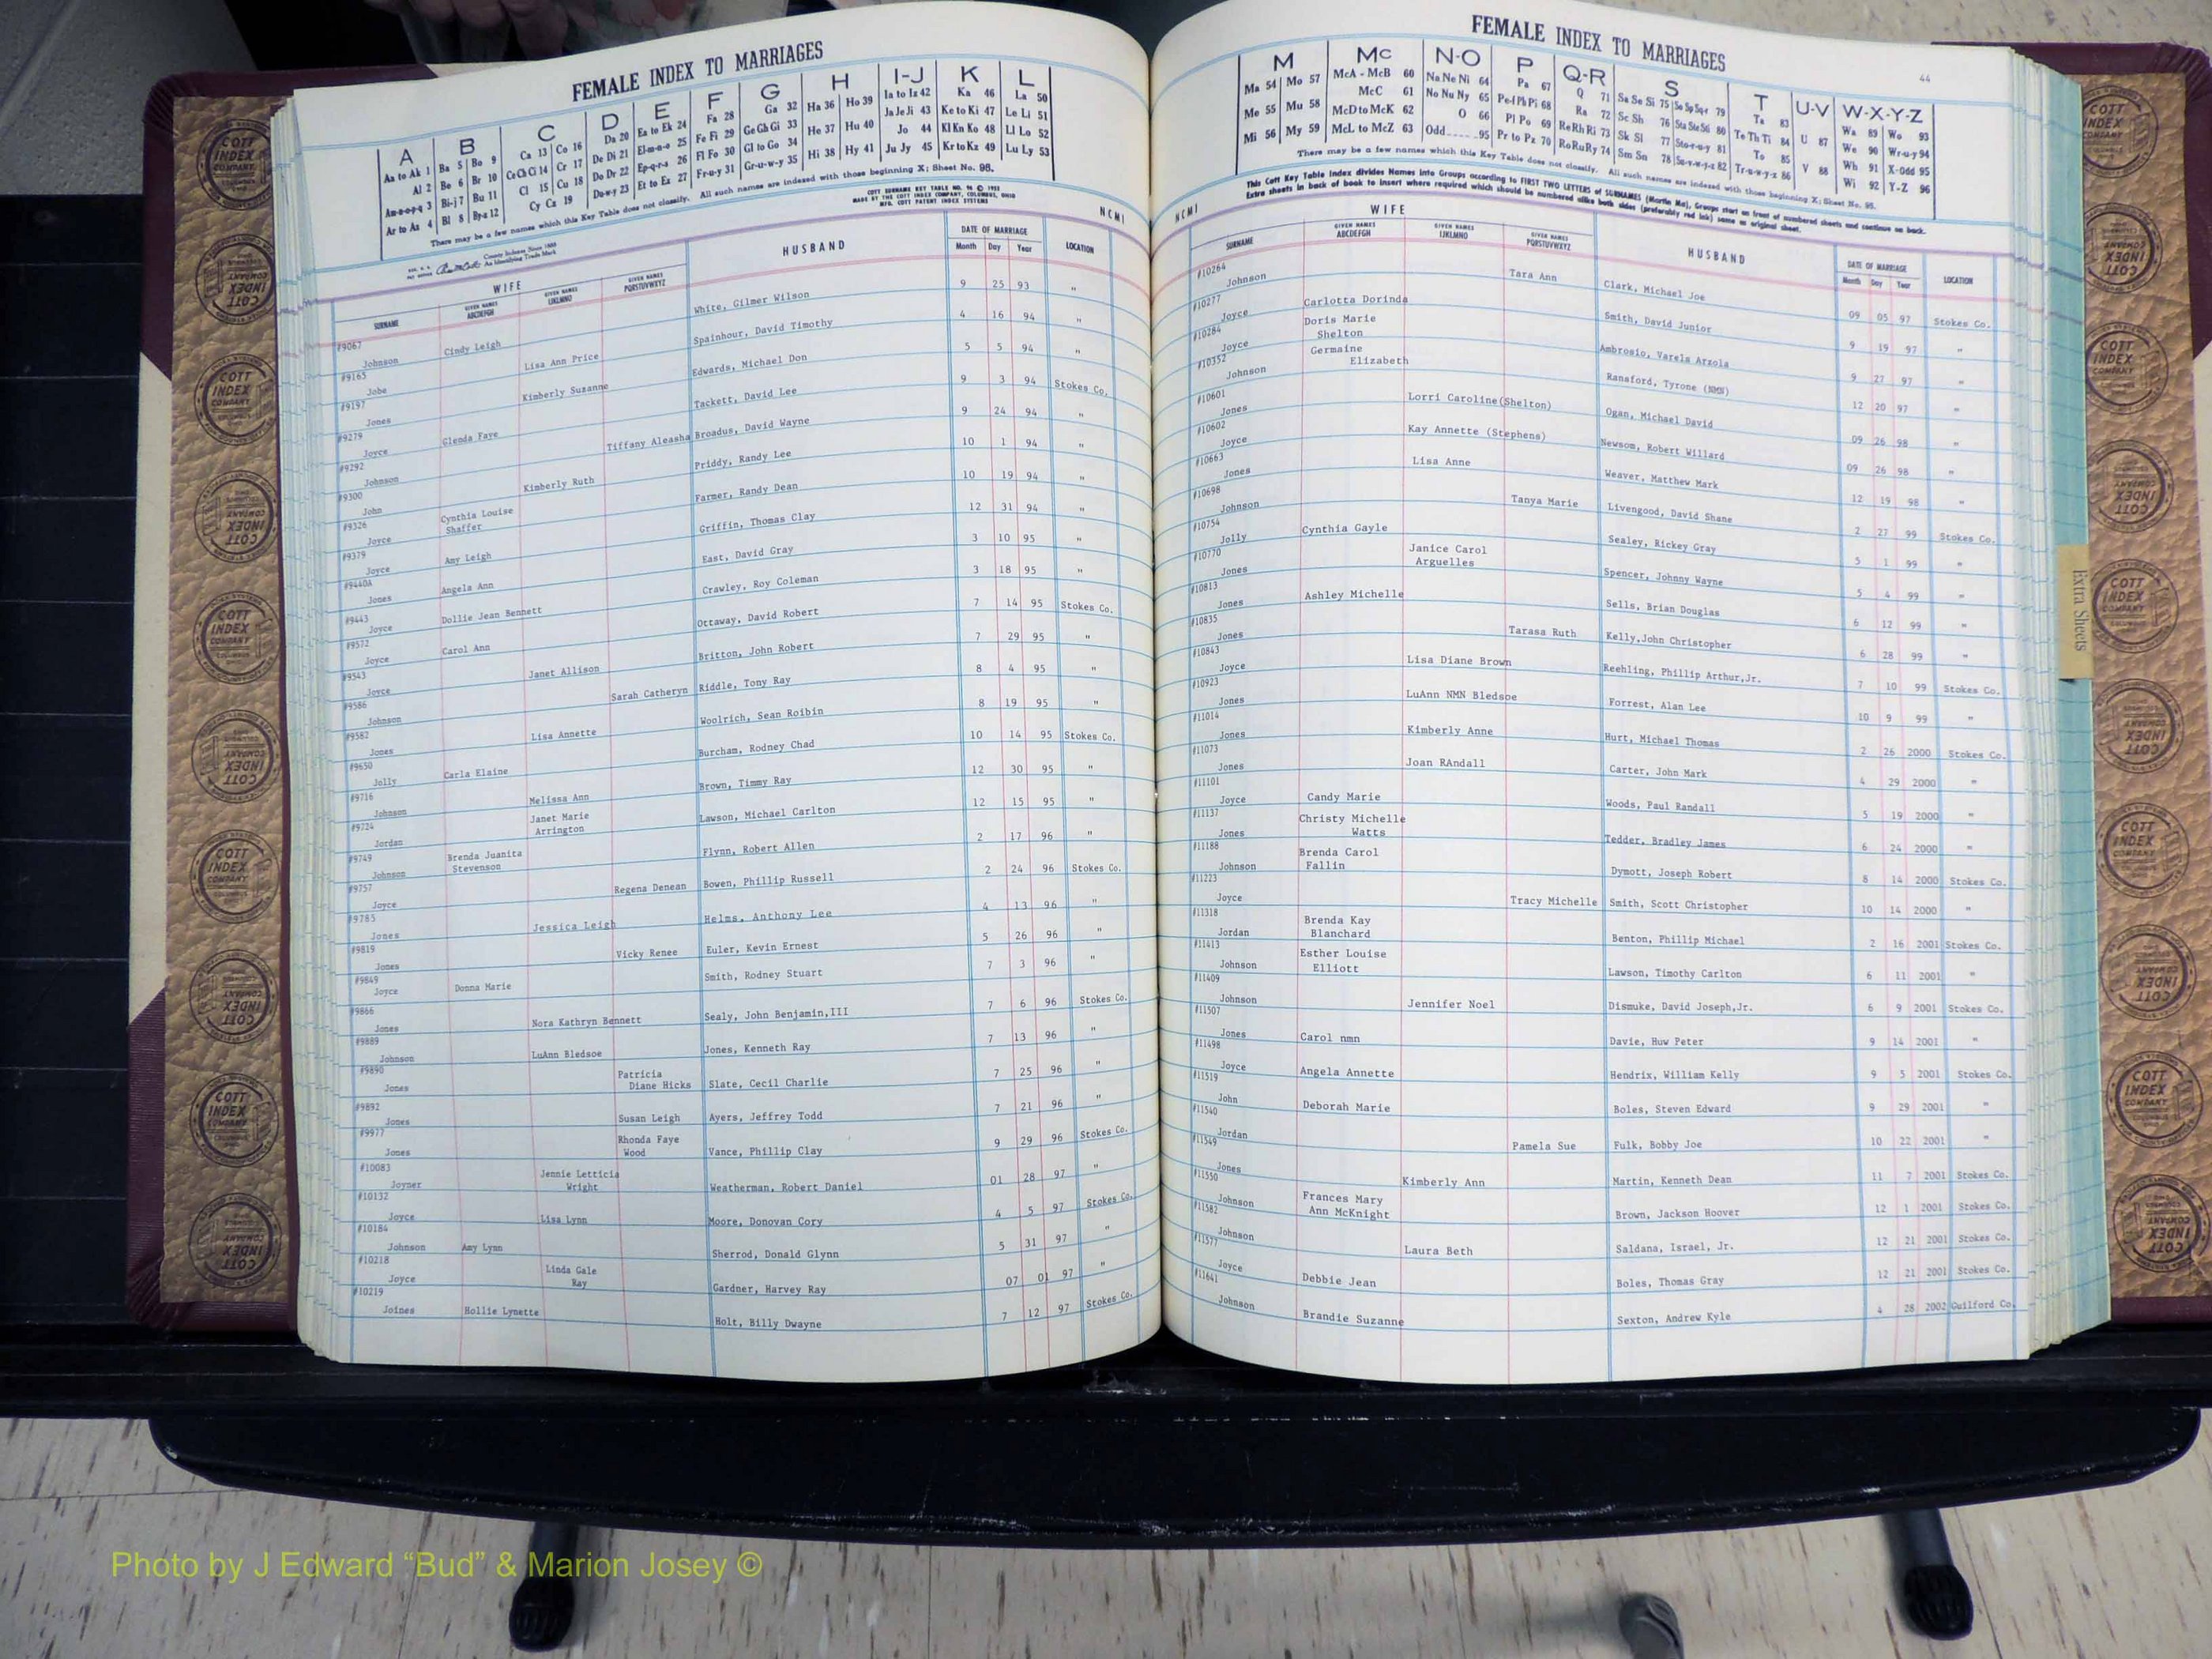 FEMALE INDEX TO MARRIAGES
A B C D E F G H I-J K L
Aa to Ak 1 Ba 5 Bo 9 Ca 13 Co 16 Da 20 Ea to Ek 24 Fa 28 Ga 32 Ha 36 Ho 39 Ia to Iz 42 Ka 46 La 50
Al 2 Be 6 Br 10 Ce Ch Ci 14 Cr 17 De Di 21 El-m-n-o 25 Fe Fi 29 Ge Gh Gi 33 He 37 Hu 40 Ja Je Ji 43 Ke to Ki 47 Le Li 51
Am-n-o-p-q 3 Bi-j 7 Bu 11 Cl 15 Cu 18 Do Dr 22 Ep-q-r-s 26 Fl Fo 30 Gl to Go 34 Hi 38 Hy 41 Jo 44 Kl Kn Ko 48 Ll Lo 52
Ar to Az 4 Bl 8 By-z 12 Cy Cz 19 Du-w-y 23 Et to Ez 27 Fr-u-y 31 Gr-u-w-y 35 Ju Jy 45 Kr to Kz 49 Lu Ly 53
There may be a few names which this Key Table does not classify. All such names are indexed with those beginning X; Sheet No. 95.
COTT SURNAME KEY TABLE NO.
MADE BY THE COTT INDEX COMPANY, COLUMBUS, OHIO
MFG. COTT PATENT INDEX SYSTEMS
NCMI
County Indexes Since 1888
An Identifying Trade Mark
WIFE HUSBAND DATE OF MARRIAGE LOCATION
SURNAME GIVEN NAMES ABCDEFGH GIVEN NAMES IJKLMNO GIVEN NAMES PQRSTUVWXYZ Month Day Year
#9067 Johnson Cindy Leigh White, Gilmer Wilson 9 25 93 "
#9165 Jobe Lisa Ann Price Spainhour, David Timothy 4 16 94 "
#9197 Jones Kimberly Suzanne Edwards, Michael Don 5 5 94 "
#9279 Joyce Glenda Faye Tackett, David Lee 9 3 94 Stokes Co.
#9292 Johnson Tiffany Aleasha Broadus, David Wayne 9 24 94 "
#9300 John Kimberly Ruth Priddy, Randy Lee 10 1 94 "
#9326 Joyce Cynthia Louise Shaffer Farmer, Randy Dean 10 19 94 "
#9379 Joyce Amy Leigh Griffin, Thomas Clay 12 31 94 "
#9440A Jones Angela Ann East, David Gray 3 10 95 "
#9443 Joyce Dollie Jean Bennett Crawley, Roy Coleman 3 18 95 "
#9572 Joyce Carol Ann Ottaway, David Robert 7 14 95 Stokes Co.
#9543 Joyce Janet Allison Britton, John Robert 7 29 95 "
#9586 Johnson Sarah Catheryn Riddle, Tony Ray 8 4 95 "
#9582 Jones Lisa Annette Woolrich, Sean Roibin 8 19 95 "
#9650 Jolly Carla Elaine Burcham, Rodney Chad 10 14 95 Stokes Co.
#9716 Johnson Melissa Ann Brown, Timmy Ray 12 30 95 "
#9724 Jordan Janet Marie Arrington Lawson, Michael Carlton 12 15 95 "
#9749 Johnson Brenda Juanita Stevenson Flynn, Robert Allen 2 17 96 "
#9757 Joyce Regena Denean Bowen, Phillip Russell 2 24 96 Stokes Co.
#9785 Jones Jessica Leigh Helms, Anthony Lee 4 13 96 "
#9819 Jones Vicky Renee Euler, Kevin Ernest 5 26 96 "
#9849 Joyce Donna Marie Smith, Rodney Stuart 7 3 96 "
#9866 Jones Nora Kathryn Bennett Sealy, John Benjamin,III 7 6 96 Stokes Co.
#9889 Johnson LuAnn Bledsoe Jones, Kenneth Ray 7 13 96 "
#9890 Jones Patricia Diane Hicks Slate, Cecil Charlie 7 25 96 "
#9892 Jones Susan Leigh Ayers, Jeffrey Todd 7 21 96 "
#9977 Jones Rhonda Faye Wood Vance, Phillip Clay 9 29 96 Stokes Co.
#10083 Joyner Jennie Letticia Wright Weatherman, Robert Daniel 01 28 97 "
#10132 Joyce Lisa Lynn Moore, Donovan Cory 4 5 97 Stokes Co.
#10184 Johnson Amy Lynn Sherrod, Donald Glynn 5 31 97 "
#10218 Joyce Linda Gale Ray Gardner, Harvey Ray 07 01 97 "
#10219 Joines Hollie Lynette Holt, Billy Dwayne 7 12 97 Stokes Co.
FEMALE INDEX TO MARRIAGES
44
M Mc N-O P Q-R S T U-V W-X-Y-Z
Ma 54 Mo 57 McA - McB 60 Na Ne Ni 64 Pa 67 Q 71 Sa Se Si 75 So Sp Sq-r 79 Ta 83 U 87 Wa 89 Wo 93
Me 55 Mu 58 McC 61 No Nu Ny 65 Pe-f Ph Pi 68 Ra 72 Sc Sh 76 Sta Ste Sti 80 Te Th Ti 84 V 88 We 90 Wr-u-y 94
Mi 56 My 59 McD to McK 62 O 66 Pl Po 69 Re Rh Ri 73 Sk Sl 77 Sto-r-u-y 81 To 85 Wh 91 X-Odd 95
McL to McZ 63 Odd 95 Pr to Pz 70 Ro Ru Ry 74 Sm Sn 78 Su-v-w-y-z 82 Tr-u-w-y-z 86 Wi 92 Y-Z 96
There may be a few names which this Key Table does not classify. All such names are indexed with those beginning X; Sheet No. 95.
This Cott Key Table Index divides Names into Groups according to FIRST TWO LETTERS of SURNAMES (Martin Ma), Groups start on front of numbered sheets and continue on back.
Extra sheets in back of book to insert where required which should be numbered alike both sides (preferably red ink) same as original sheet.
NCMI
WIFE HUSBAND DATE OF MARRIAGE LOCATION
SURNAME GIVEN NAMES ABCDEFGH GIVEN NAMES IJKLMNO GIVEN NAMES PQRSTUVWXYZ Month Day Year
#10264 Johnson Tara Ann Clark, Michael Joe 09 05 97 Stokes Co.
#10277 Joyce Carlotta Dorinda Smith, David Junior 9 19 97 "
#10284 Joyce Doris Marie Shelton Ambrosio, Varela Arzola 9 27 97 "
#10352 Johnson Germaine Elizabeth Ransford, Tyrone (NMN) 12 20 97 "
#10601 Jones Lorri Caroline(Shelton) Ogan, Michael David 09 26 98 "
#10602 Joyce Kay Annette (Stephens) Newsom, Robert Willard 09 26 98 "
#10663 Jones Lisa Anne Weaver, Matthew Mark 12 19 98 "
#10698 Johnson Tanya Marie Livengood, David Shane 2 27 99 Stokes Co.
#10754 Jolly Cynthia Gayle Sealey, Rickey Gray 5 1 99 "
#10770 Jones Janice Carol Arguelles Spencer, Johnny Wayne 5 4 99 "
#10813 Jones Ashley Michelle Sells, Brian Douglas 6 12 99 "
#10835 Jones Tarasa Ruth Kelly,John Christopher 6 28 99 "
#10843 Joyce Lisa Diane Brown Reehling, Phillip Arthur,Jr. 7 10 99 Stokes Co.
#10923 Jones LuAnn NMN Bledsoe Forrest, Alan Lee 10 9 99 "
#11014 Jones Kimberly Anne Hurt, Michael Thomas 2 26 2000 Stokes Co.
#11073 Jones Joan RAndall Carter, John Mark 4 29 2000 "
#11101 Joyce Candy Marie Woods, Paul Randall 5 19 2000 "
#11137 Jones Christy Michelle Watts Tedder, Bradley James 6 24 2000 "
#11188 Johnson Brenda Carol Fallin Dymott, Joseph Robert 8 14 2000 Stokes Co.
#11223 Joyce Tracy Michelle Smith, Scott Christopher 10 14 2000 "
#11318 Jordan Brenda Kay Blanchard Benton, Phillip Michael 2 16 2001 Stokes Co.
#11413 Johnson Esther Louise Elliott Lawson, Timothy Carlton 6 11 2001 "
#11409 Johnson Jennifer Noel Dismuke, David Joseph,Jr. 6 9 2001 Stokes Co.
#11507 Jones Carol nmn Davie, Huw Peter 9 14 2001 "
#11498 Joyce Angela Annette Hendrix, William Kelly 9 5 2001 Stokes Co.
#11519 John Deborah Marie Boles, Steven Edward 9 29 2001 "
#11540 Jordan Pamela Sue Fulk, Bobby Joe 10 22 2001 "
#11549 Jones Kimberly Ann Martin, Kenneth Dean 11 7 2001 Stokes Co.
#11550 Johnson Frances Mary Ann McKnight Brown, Jackson Hoover 12 1 2001 Stokes Co.
#11582 Johnson Laura Beth Saldana, Israel, Jr. 12 21 2001 Stokes Co.
#11577 Joyce Debbie Jean Boles, Thomas Gray 12 21 2001 Stokes Co.
#11641 Johnson Brandie Suzanne Sexton, Andrew Kyle 4 28 2002 Guilford Co.
Extra Sheets
COTT INDEX COMPANY COLUMBUS OHIO
Photo by J Edward “Bud” & Marion Josey ©